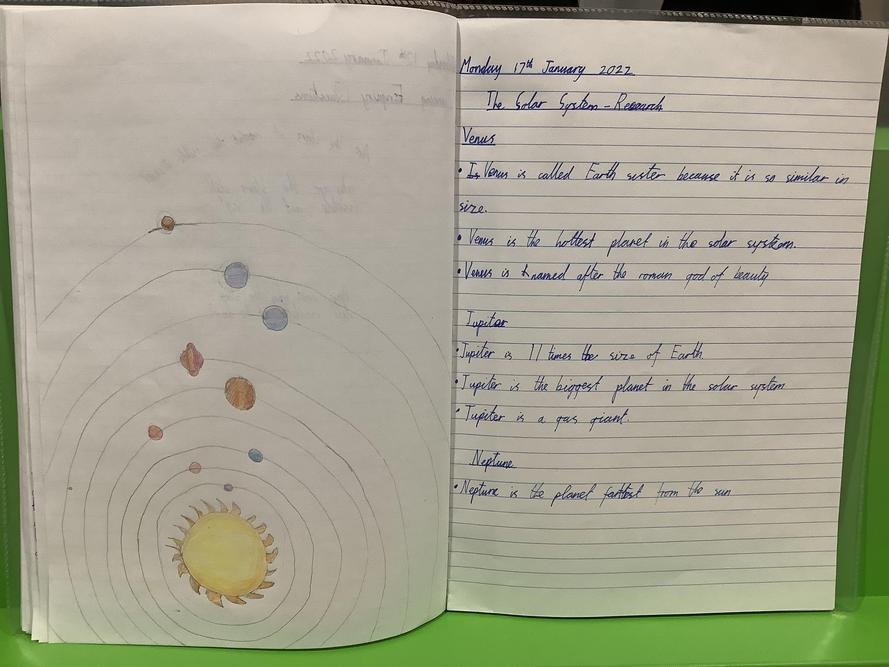 Monday 17th January 2022
The Solar System - Research
Venus
• Is Venus is called Earth sister because it is so similar in
size.
• Venus is the hottest planet in the solar system.
• Venus is named after the roman god of beauty
Jupiter
• Jupiter is 11 times the size of Earth
• Jupiter is the biggest planet in the solar system
• Jupiter is a gas giant.
Neptune
• Neptune is the planet farttest from the sun